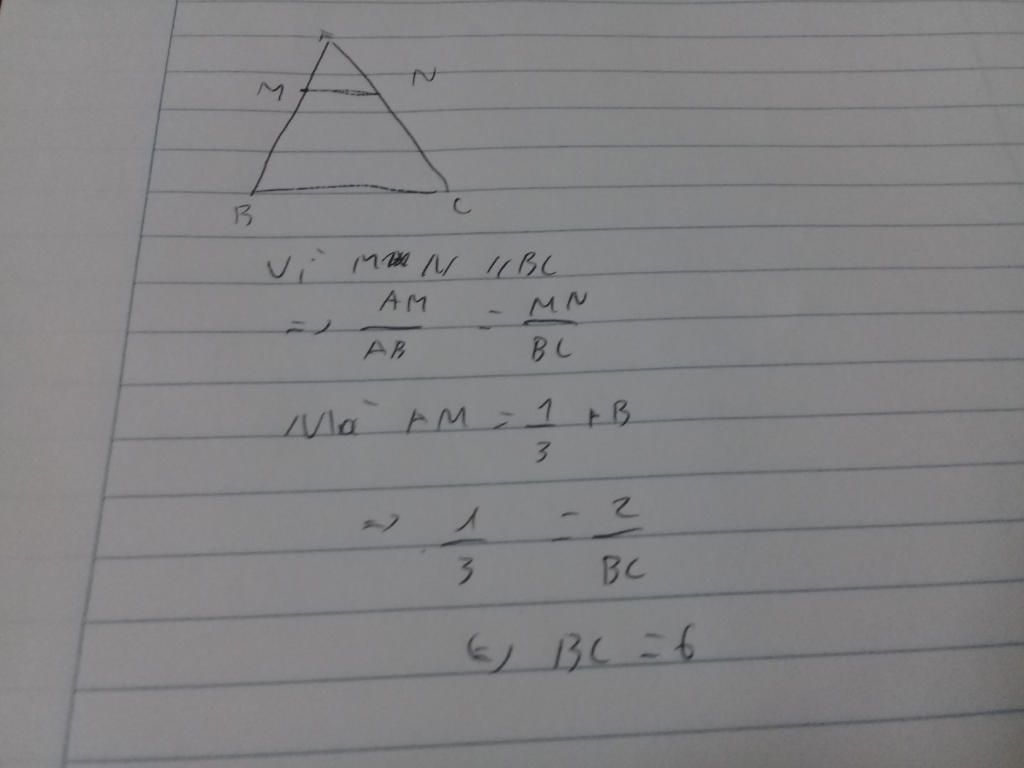 A
M N
B C
Vì MN // BC
=> AM/AB = MN/BC
Mà AM = 1/3 AB
=> 1/3 = 2/BC
<=> BC = 6